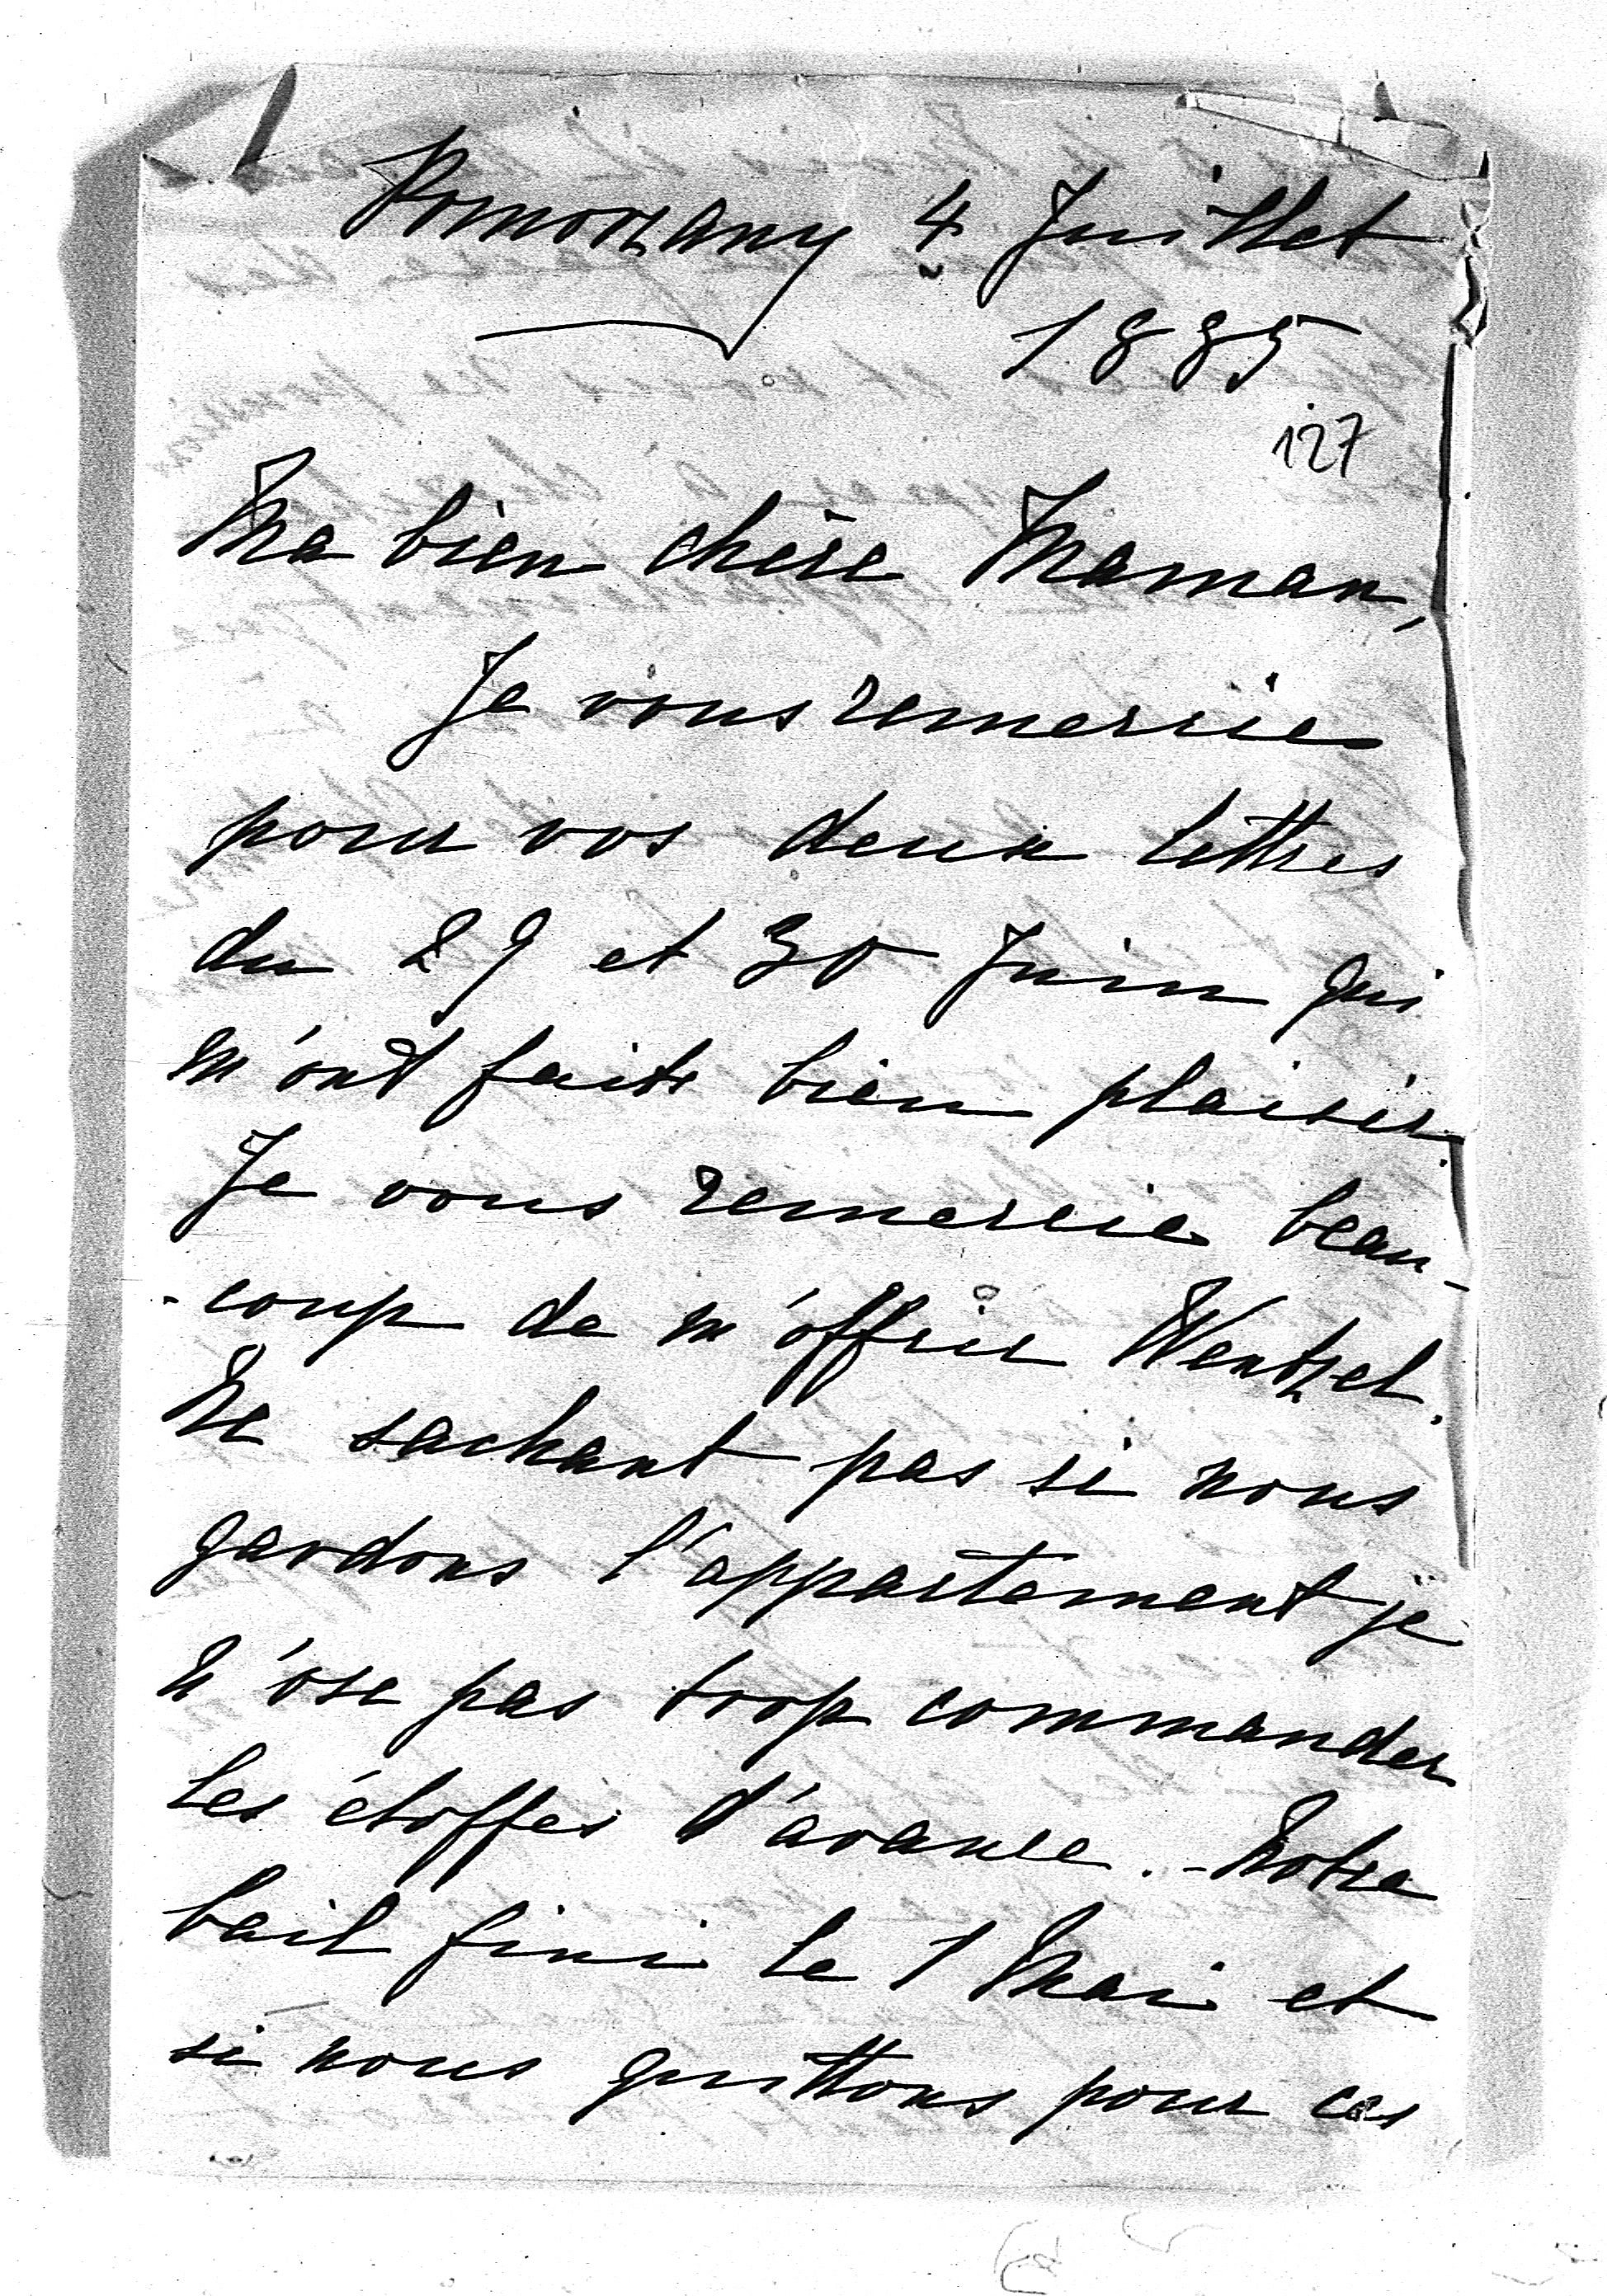 Pomorzany 4 Juillet
1885
127
Ma bien chère Maman,
Je vous remercie
pour vos deux lettres
du 29 et 30 Juin qui
m'ont faits bien plaisir
Je vous remercie beau-
-coup de m'offrir Wentzel.
Ne sachant pas si nous
gardons l'appartement je
n'ose pas trop commander
les étoffes d'avance. - Notre
bail fini le 1 Mai et
si nous quittons pour ces